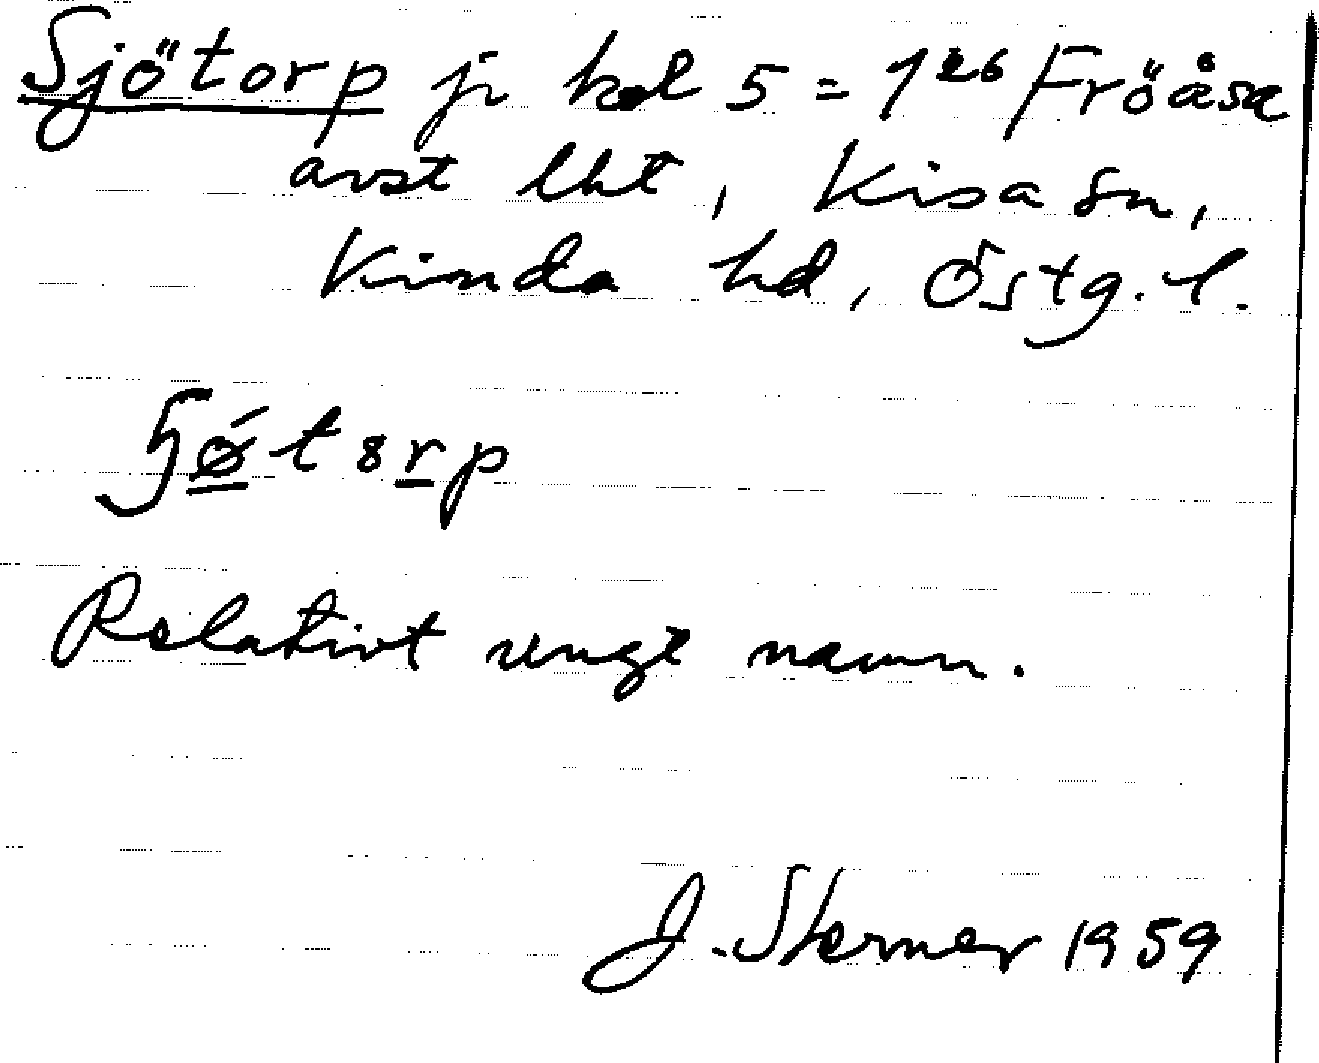 Sjötorp jr kol 5 = 1²⁶ Fröåsa
avst lht, Kisa sn,
Kinda hd, Östg. l.
ʃǿtorp
Relativt ungt namn.
J. Sterner 1959